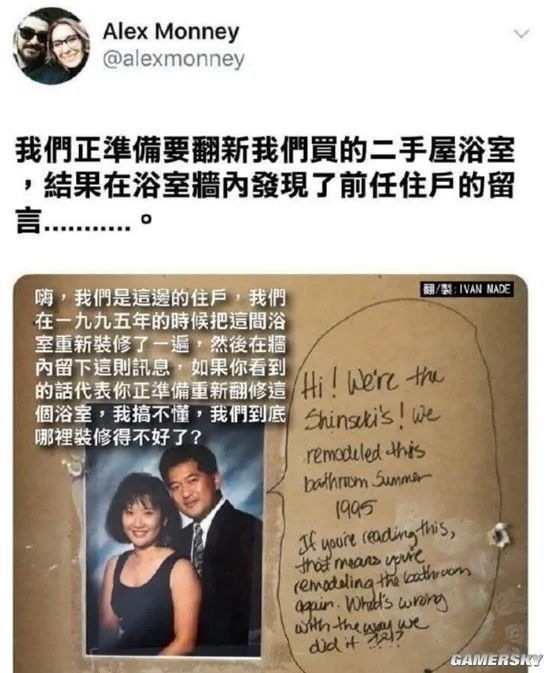 Alex Monney
@alexmonney
我們正準備要翻新我們買的二手屋浴室
，結果在浴室牆內發現了前任住戶的留
言...........。
翻/製:IVAN MADE
嗨，我們是這邊的住戶，我們
在一九九五年的時候把這間浴
室重新裝修了一遍，然後在牆
內留下這則訊息，如果你看到
的話代表你正準備重新翻修這
個浴室，我搞不懂，我們到底
哪裡裝修得不好了？
Hi! We're the
Shinseki's! We
remodeled this
bathroom Summer
1995
If you're reading this,
that means you're
remodeling the bathroom
again. What's wrong
with the way we
did it ?!?!?
GAMERSKY